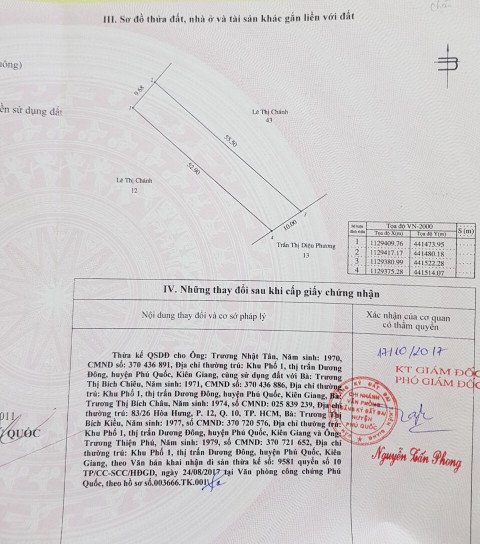 III. Sơ đồ thửa đất, nhà ở và tài sản khác gắn liền với đất
ền sử dụng đất
9.68
Lê Thị Chánh
43
53.50
52.80
Lê Thị Chánh
12
10.00
Trần Thị Diệu Phương
13
Tọa độ VN-2000
Tọa độ X(m) Tọa độ Y(m) S (m)
1 1129409.76 441473.95
2 1129417.17 441480.18
3 1129380.99 441522.28
4 1129375.28 441514.07
IV. Những thay đổi sau khi cấp giấy chứng nhận
Nội dung thay đổi và cơ sở pháp lý
Xác nhận của cơ quan
có thẩm quyền
Thừa kế QSDĐ cho Ông: Trương Nhật Tân, Năm sinh: 1970,
CMND số: 370 436 891, Địa chỉ thường trú: Khu Phố 1, thị trấn Dương
Đông, huyện Phú Quốc, Kiên Giang, cùng sử dụng đất với Bà: Trương
Thị Bích Chiêu, Năm sinh: 1971, CMND số: 370 436 886, Địa chỉ thường
trú: Khu Phố 1, thị trấn Dương Đông, huyện Phú Quốc, Kiên Giang, Bà
Trương Thị Bích Châu, Năm sinh: 1974, số CMND: 025 839 239, Địa chỉ
thường trú: 83/26 Hòa Hưng, P. 12, Q. 10, TP. HCM, Bà: Trương Thị
Bích Kiều, Năm sinh: 1977, số CMND: 370 720 576, Địa chỉ thường trú:
Khu Phố 1, thị trấn Dương Đông, huyện Phú Quốc, Kiên Giang và Ông
Trương Thiện Phú, Năm sinh: 1979, số CMND: 370 721 652, Địa chỉ
thường trú: Khu Phố 1, thị trấn Dương Đông, huyện Phú Quốc, Kiên
Giang, theo Văn bản khai nhận di sản thừa kế số: 9581 quyển số 10
TP/CC-SCC/HĐGD, ngày 24/08/2017 tại Văn phòng công chứng Phú
Quốc, theo hồ sơ số.003666.TK.001
17/10/2017
KT GIÁM ĐỐC
PHÓ GIÁM ĐỐC
CHI NHÁNH
VĂN PHÒNG
ĐĂNG KÝ ĐẤT ĐAI
HUYỆN
PHÚ QUỐC
Nguyễn Tấn Phong
011
QUỐC